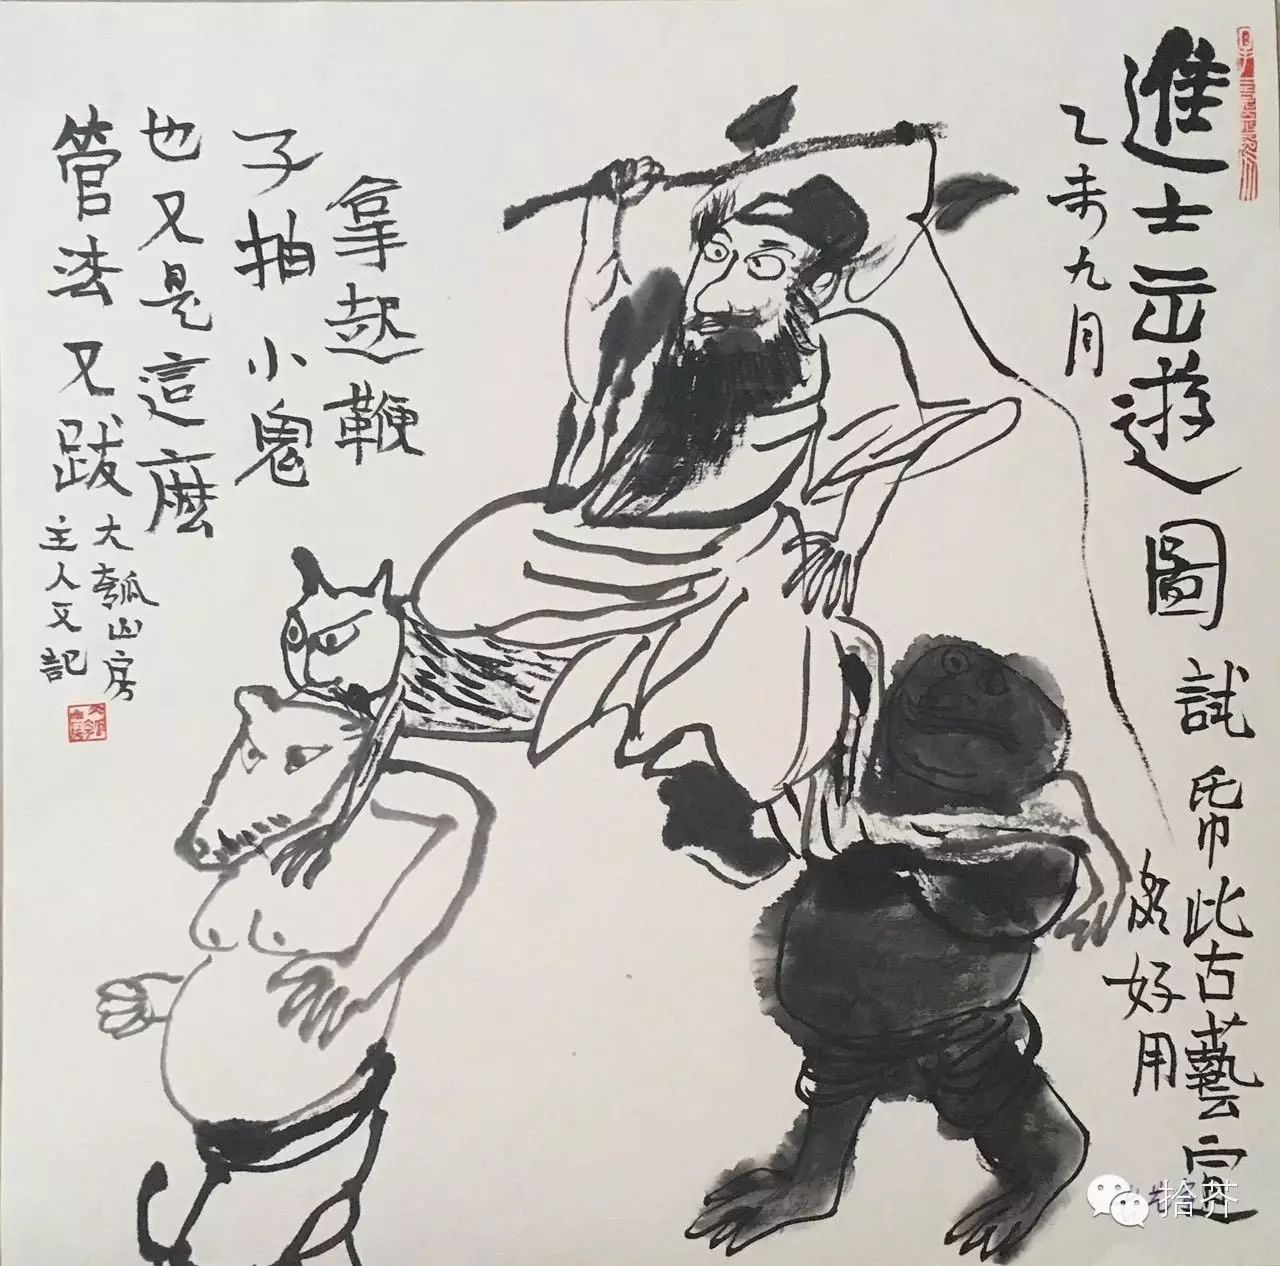 進士出遊圖
試
此古藝宣
好用
乙未九月
拿起鞭
子抽小鬼
也又是這麽
管法又跋
大瓠山房
主人又記
拾芥